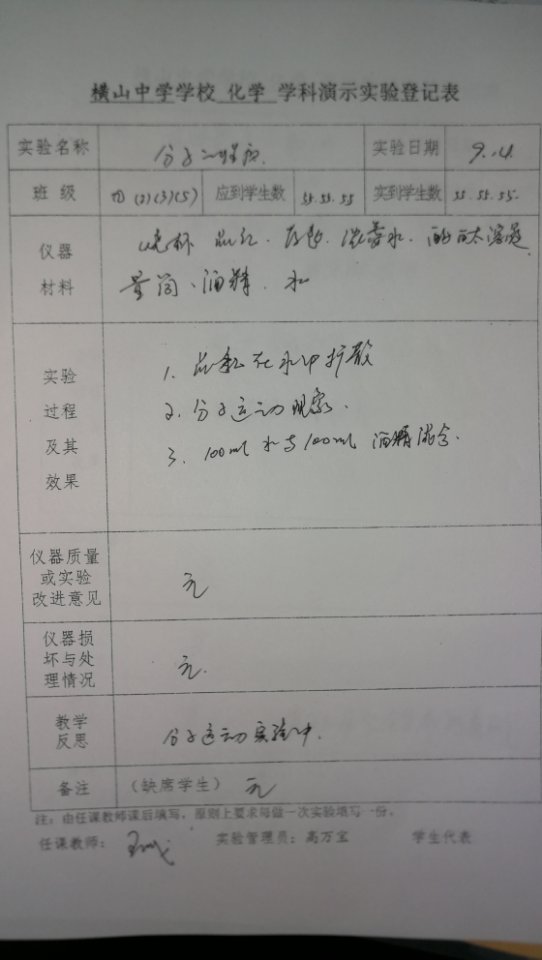 横山中学学校 化学 学科演示实验登记表
实验名称 分子 实验日期 9.4.
班级 (1) (2)(3)(5) 应到学生数 55.55.55 实到学生数 55.55.55.
仪器 烧杯 品红. 浓氨水. 酚酞溶液
材料 量筒、酒精. 水
实验 1. 品红在水中扩散
过程 2. 分子运动现象.
及其 3. 100ml水与100ml酒精混合.
效果
仪器质量
或实验 无
改进意见
仪器损
坏与处 无.
理情况
教学
反思 分子运动实验中.
备注 (缺席学生) 无
注:由任课教师课后填写,原则上要求每做一次实验填写一份。
任课教师: 实验管理员:高万宝 学生代表